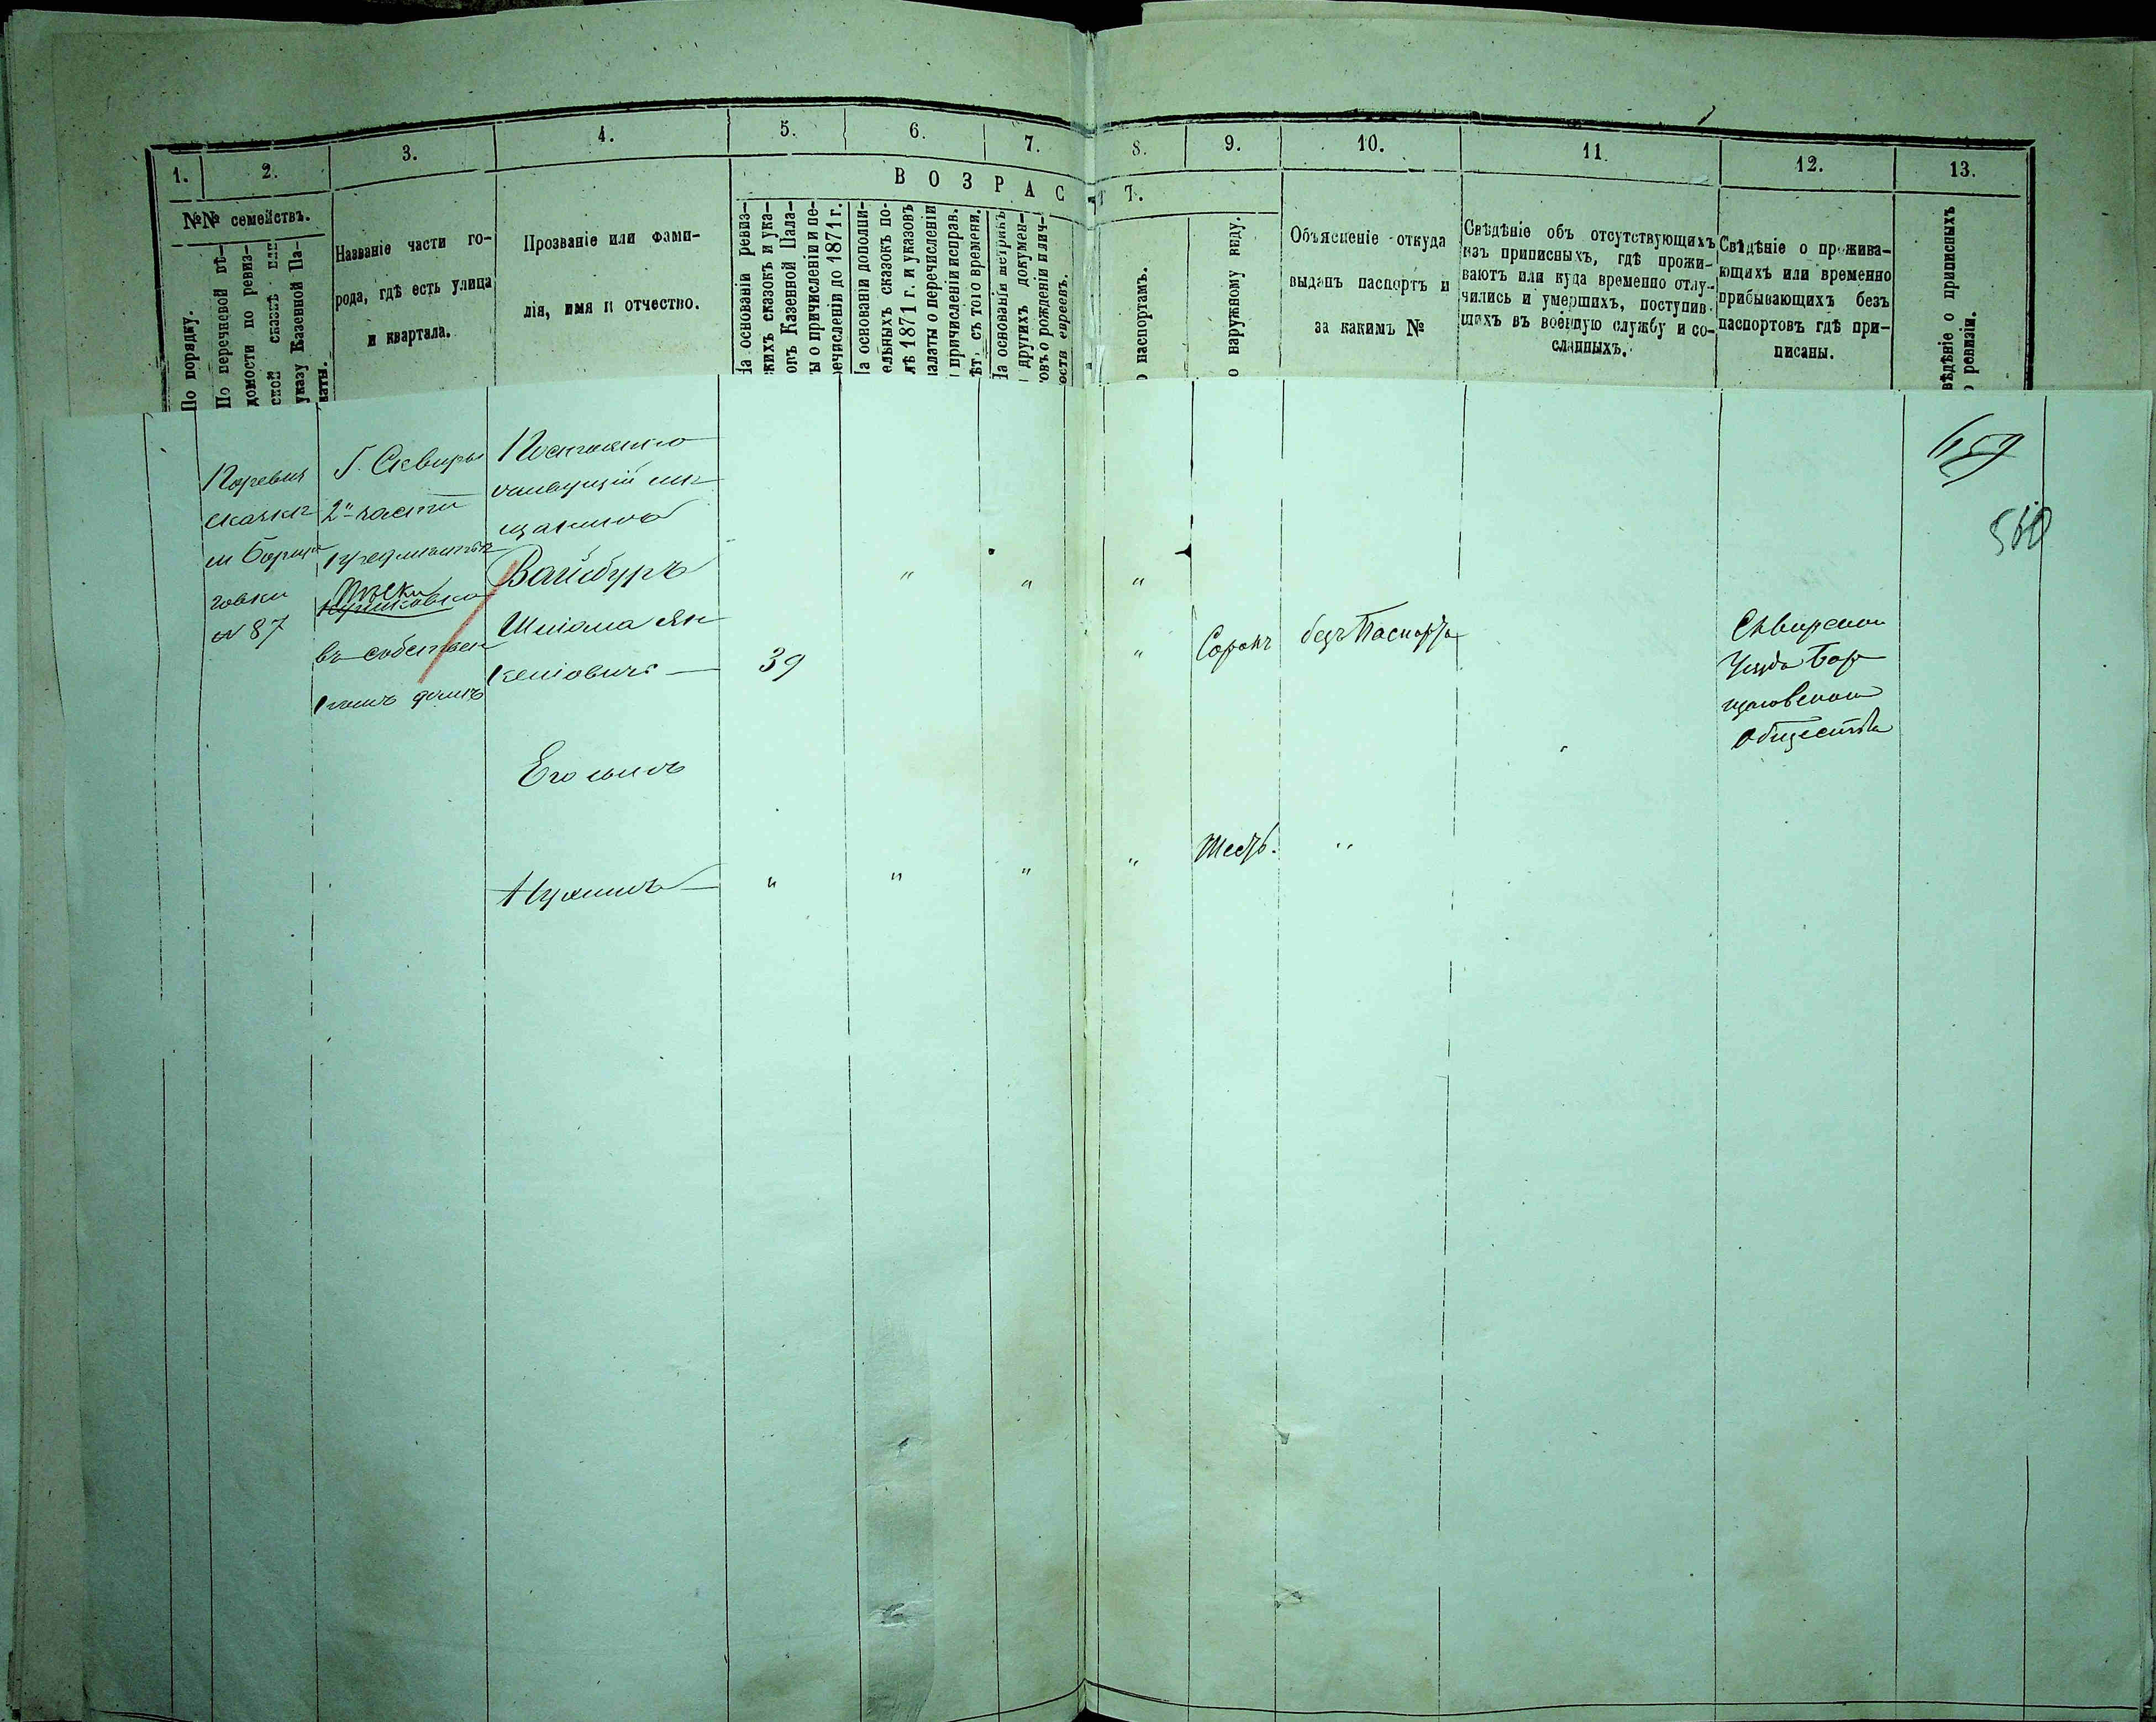 1. 2. 3. 4. 5. 6. 7. 8. 9. 10. 11. 12. 13.
ВОЗРАСТ
№№ семействъ.
По порядку.
По перечневой вѣ-
домости по ревиз-
ской сказкѣ или
указу Казенной Па-
латы.
Названіе части го-
рода, гдѣ есть улица
и квартала.
Прозваніе или фами-
лія, имя и отчество.
На основаніи ревиз-
скихъ сказокъ и ука-
зовъ Казенной Пала-
ты о причисленіи и пе-
речисленіи до 1871 г.
На основаніи дополни-
тельныхъ сказокъ по-
слѣ 1871 г. и указовъ
палаты о перечисленіи
и причисленіи исправ.
лѣт. съ того времени.
На основаніи метрикъ
и другихъ докумен-
товъ о рожденіи и лич-
ности евреевъ.
о паспортамъ.
о наружному виду.
Объясненіе откуда
выданъ паспортъ и
за какимъ №
Свѣдѣніе объ отсутствующихъ
изъ приписныхъ, гдѣ прожи-
ваютъ или куда временно отлу-
чились и умершихъ, поступив-
шихъ въ военную службу и со-
сланныхъ.
Свѣдѣніе о прожива-
ющихъ или временно
прибывающихъ безъ
паспортовъ гдѣ при-
писаны.
вѣдѣніе о приписныхъ
о ревизіи.
По ревиз
сказкѣ
м Борща
говки
№ 87
Г. Сквиры
2й части
предмѣстья
Пѣски
въ собствен
номъ домѣ
Постоянно
мѣ
щанинъ
Вайсбуръ
Шліома Ян
келіовичъ
39
Сорокъ
безъ Паспорта
Сквирскаго
Уѣзда Бор
щаговскаго
Общества
Его сынъ
Нухимъ
Шесть.
560